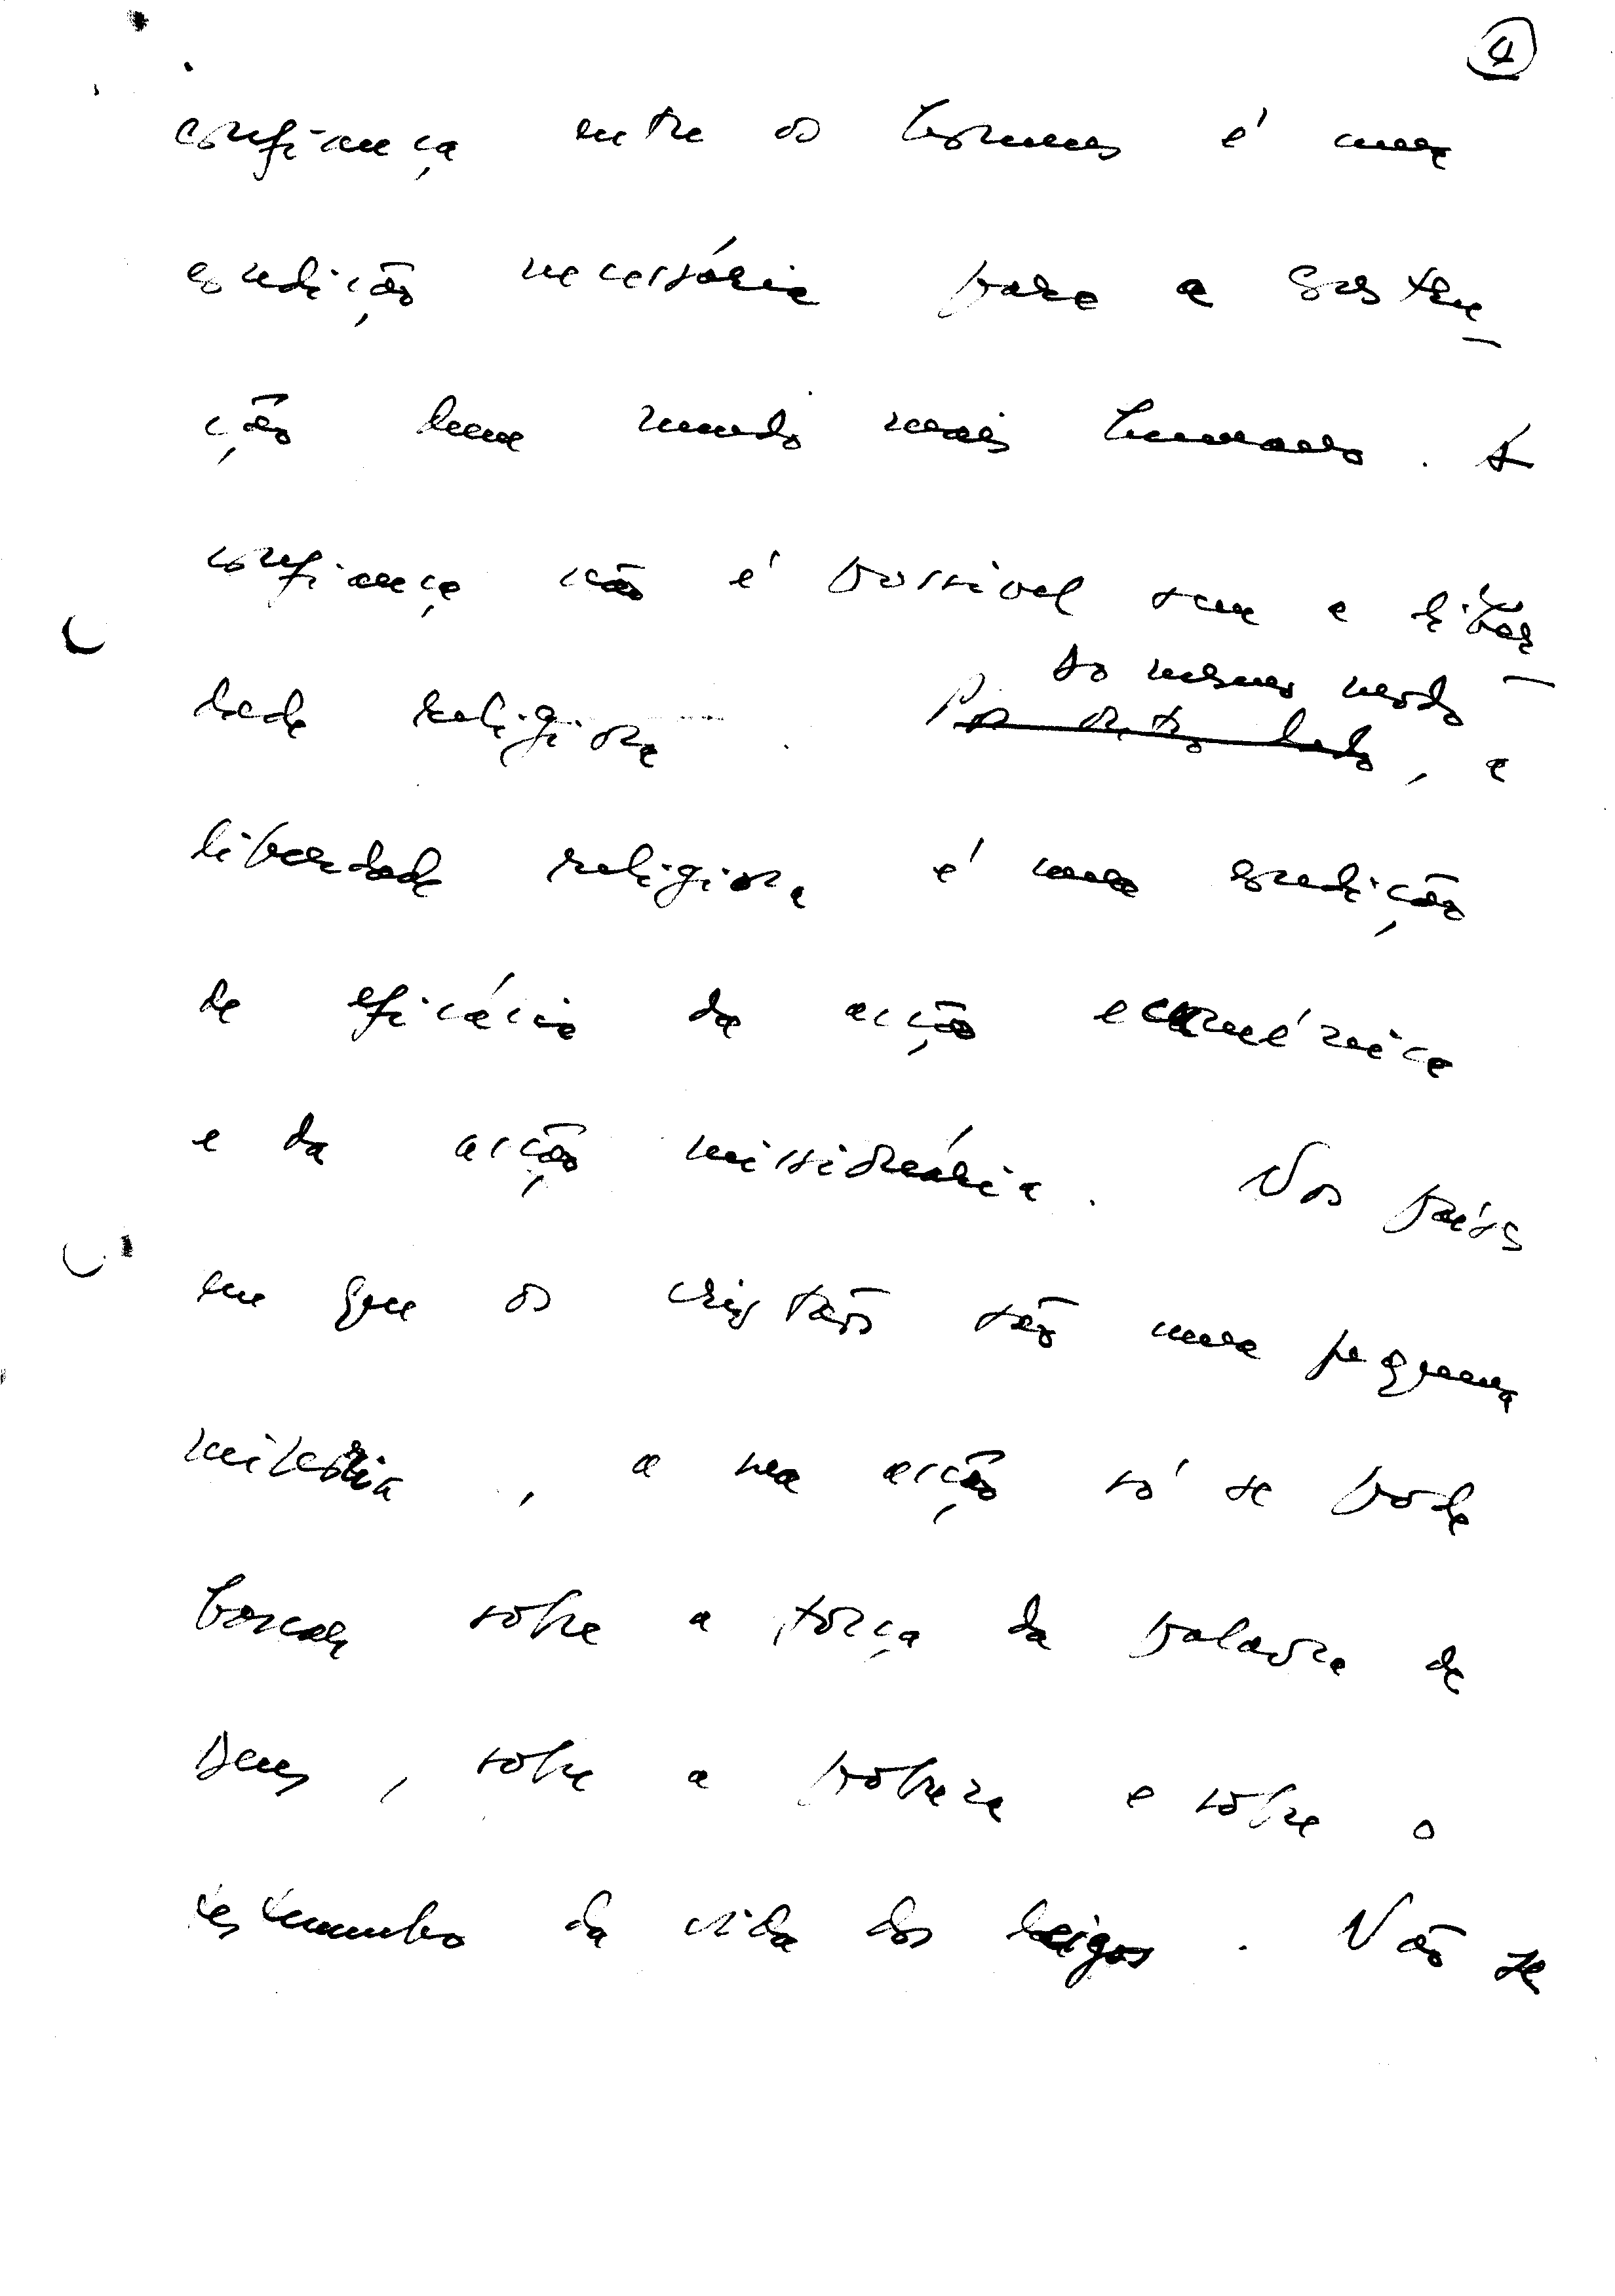 4
confiança entre os homens é uma
condição necessária para a constru-
ção dum mundo mais humano. A
confiança não é possível sem a liber-
do mesmo modo
dade religiosa. Por outro lado, a
liberdade religiosa é uma condição
de eficácia da acção ecuménica
e da acção missionária. Nos países
em que os cristãos são uma pequena
minoria, a sua acção só se pode
basear sobre a força da palavra de
Deus, sobre a pobreza e sobre o
testemunho da vida dos leigos. Não se